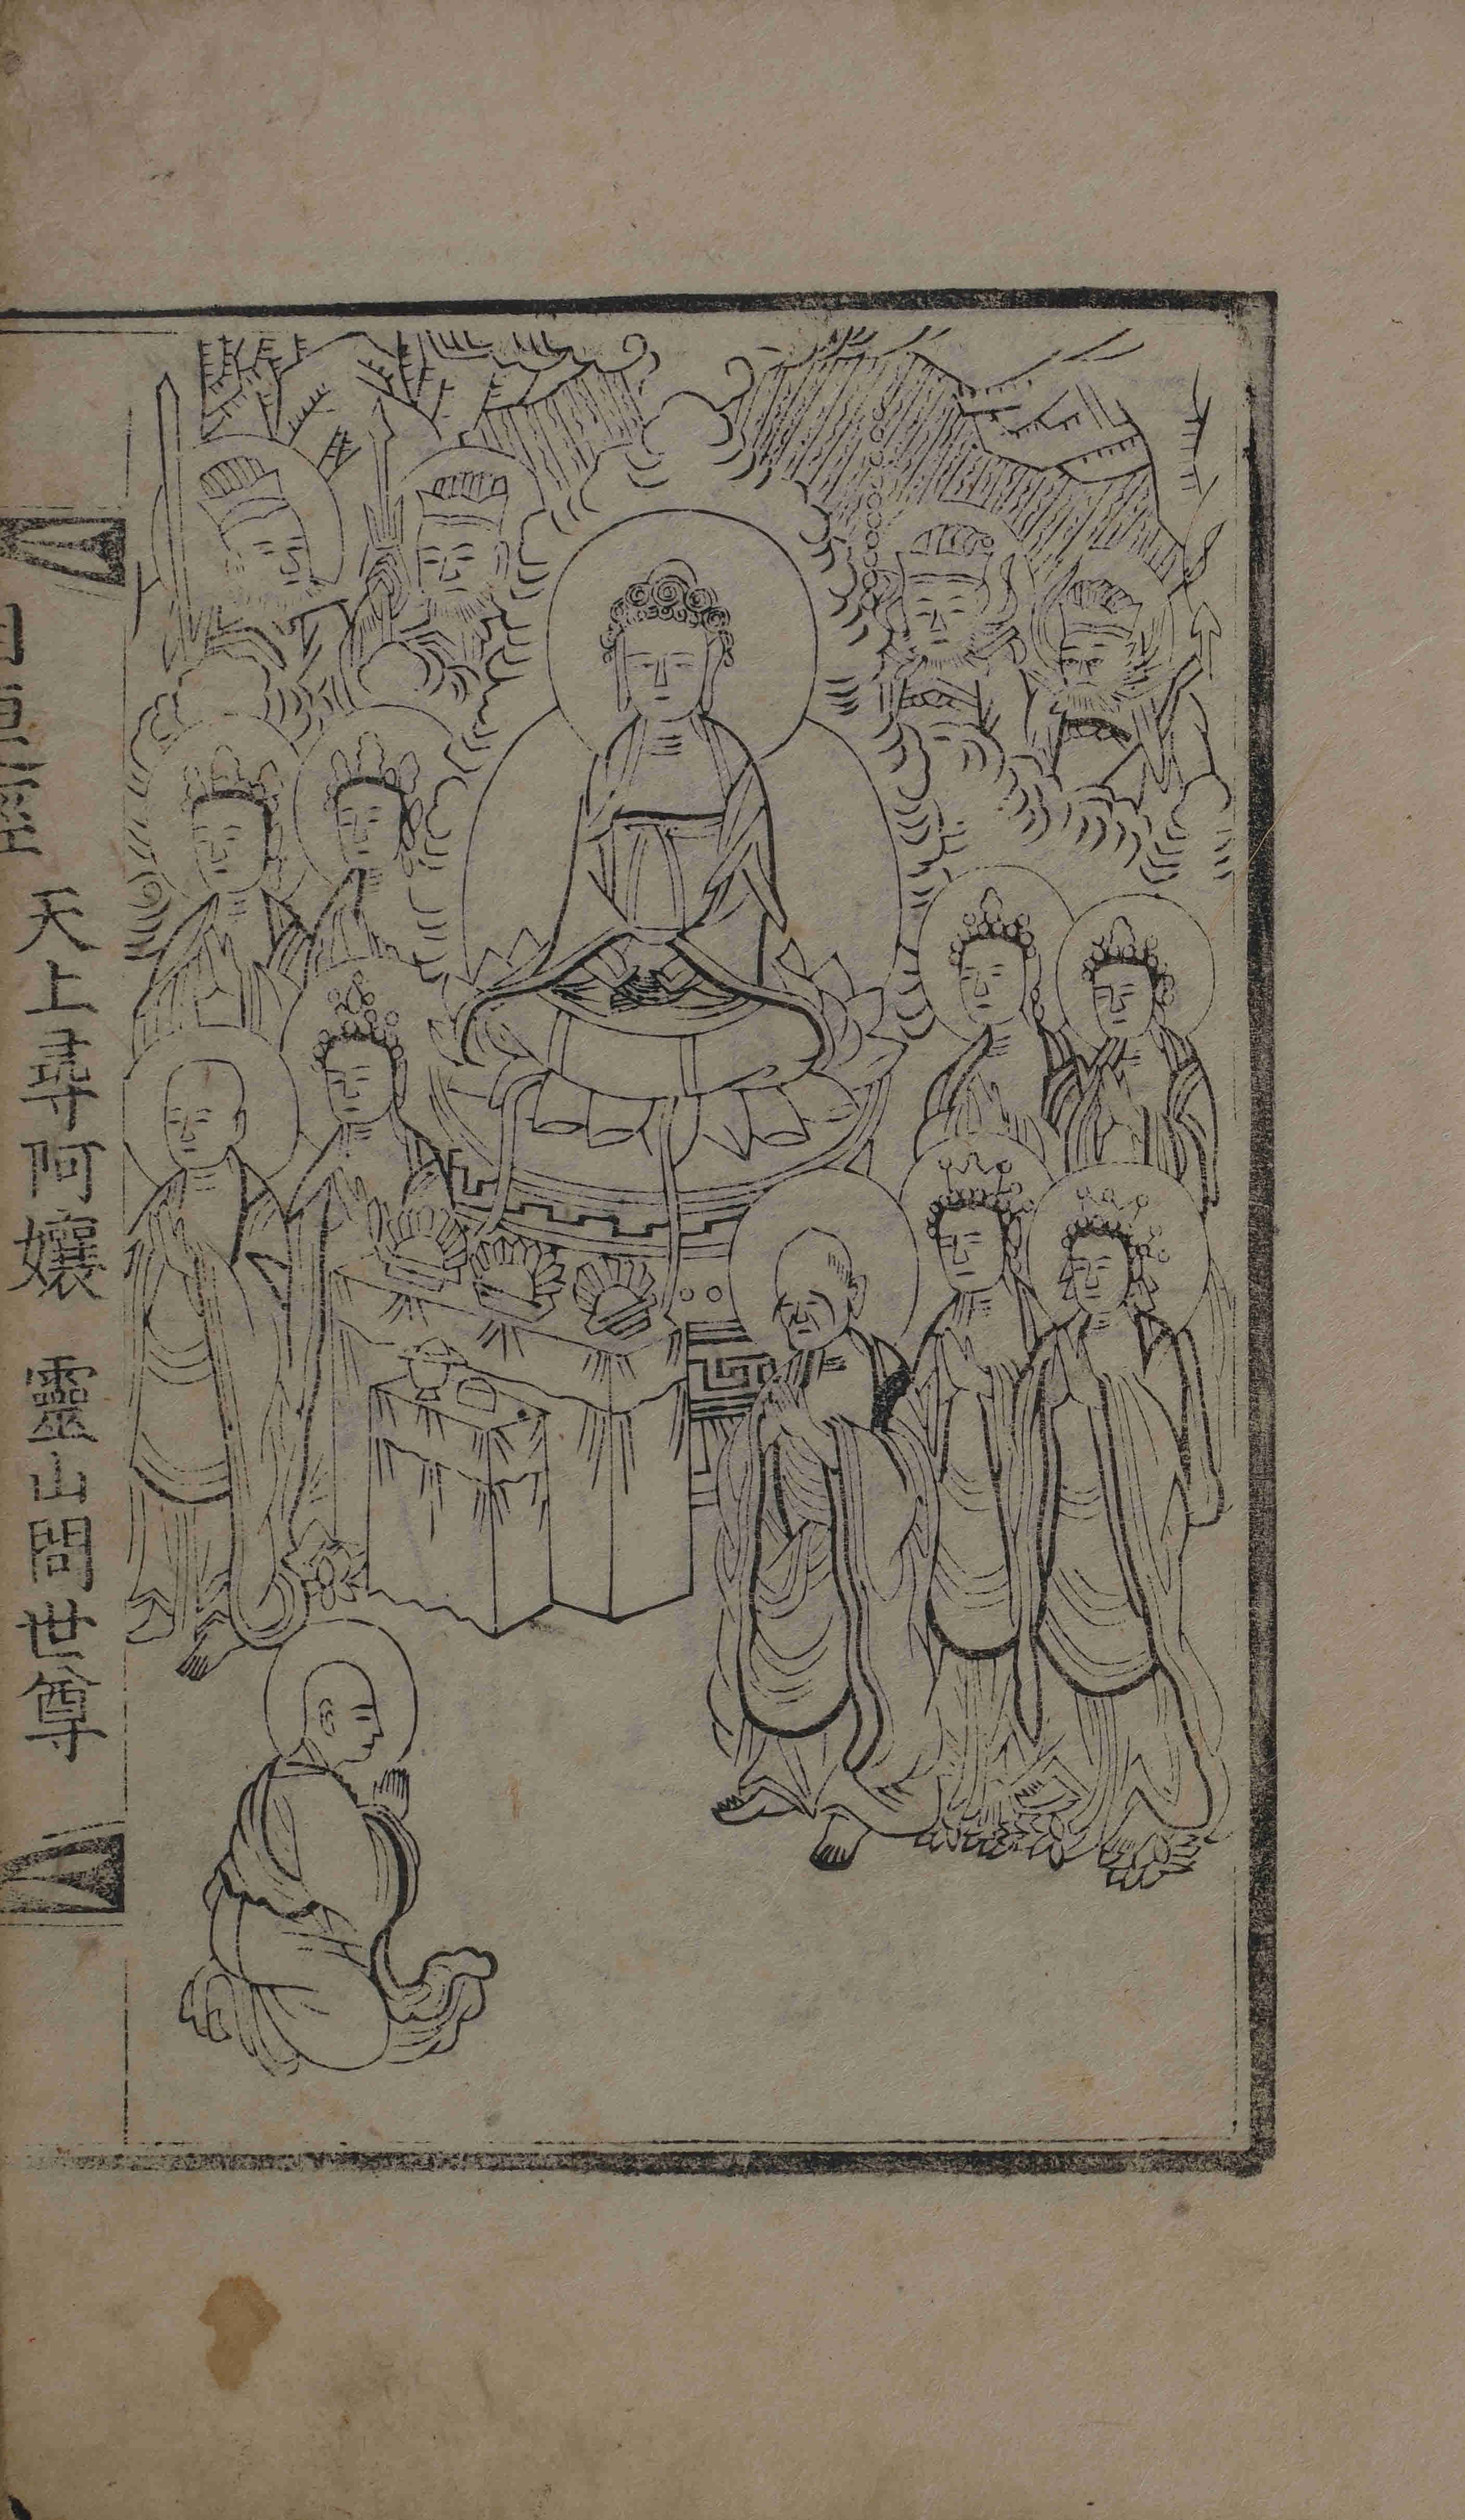 天上尋阿孃 靈山問世尊